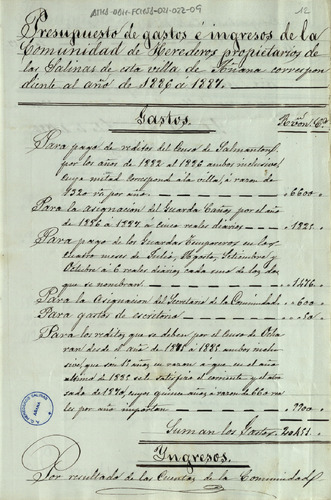 12
Presupuesto de gastos é ingresos de la
Comunidad de Herederos propietarios de
las Salinas de esta villa de Añana correspon
diente al año de 1886 a 1887.
Gastos.
Rvón. Cs.
Para pago de reditos del Censo de
por los años de 1882 al 1886 ambos inclusives,
cuya mitad corresponde á la villa, á razon de
1320 rs por año 6600
Para la asignacion del Guarda Caños por el año
de 1886 á 1887 á cinco reales diarios 1825
Para pago de los Guardas Temporeros en los
cuatro meses de Julio, Agosto, Setiembre y
Octubre á 6 reales diarios cada uno de los dos
que se nombran 1476
Para la Asignacion del Secretario de la Comunidad 600
Para gastos de escritorio 50
Para los reditos que se deben por el Censo de
desde el año de á 1885 ambos inclu
sives, que son 15 años en razon a que en el año
ultimo de 1885 se satisfizo el corriente y el atra
sado de 1870, cuyos quince años á razon de 660 rea
les por año importan 9900
Suman los Gastos 20451
Ingresos.
Por resultado de las Cuentas de la Comunidad